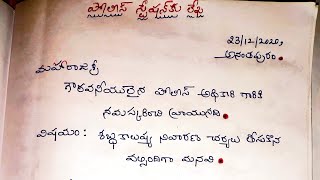 పోలీస్ స్టేషన్‌కు లేఖ
23/12/2020,
అనంతపురం.
మహారాజశ్రీ
గౌరవనీయులైన పోలీస్ అధికారి గారికి
నమస్కరించి వ్రాయునది.
విషయం: శబ్దకాలుష్య నివారణా చర్యలు తీసుకొన
వలసిందిగా మనవి.